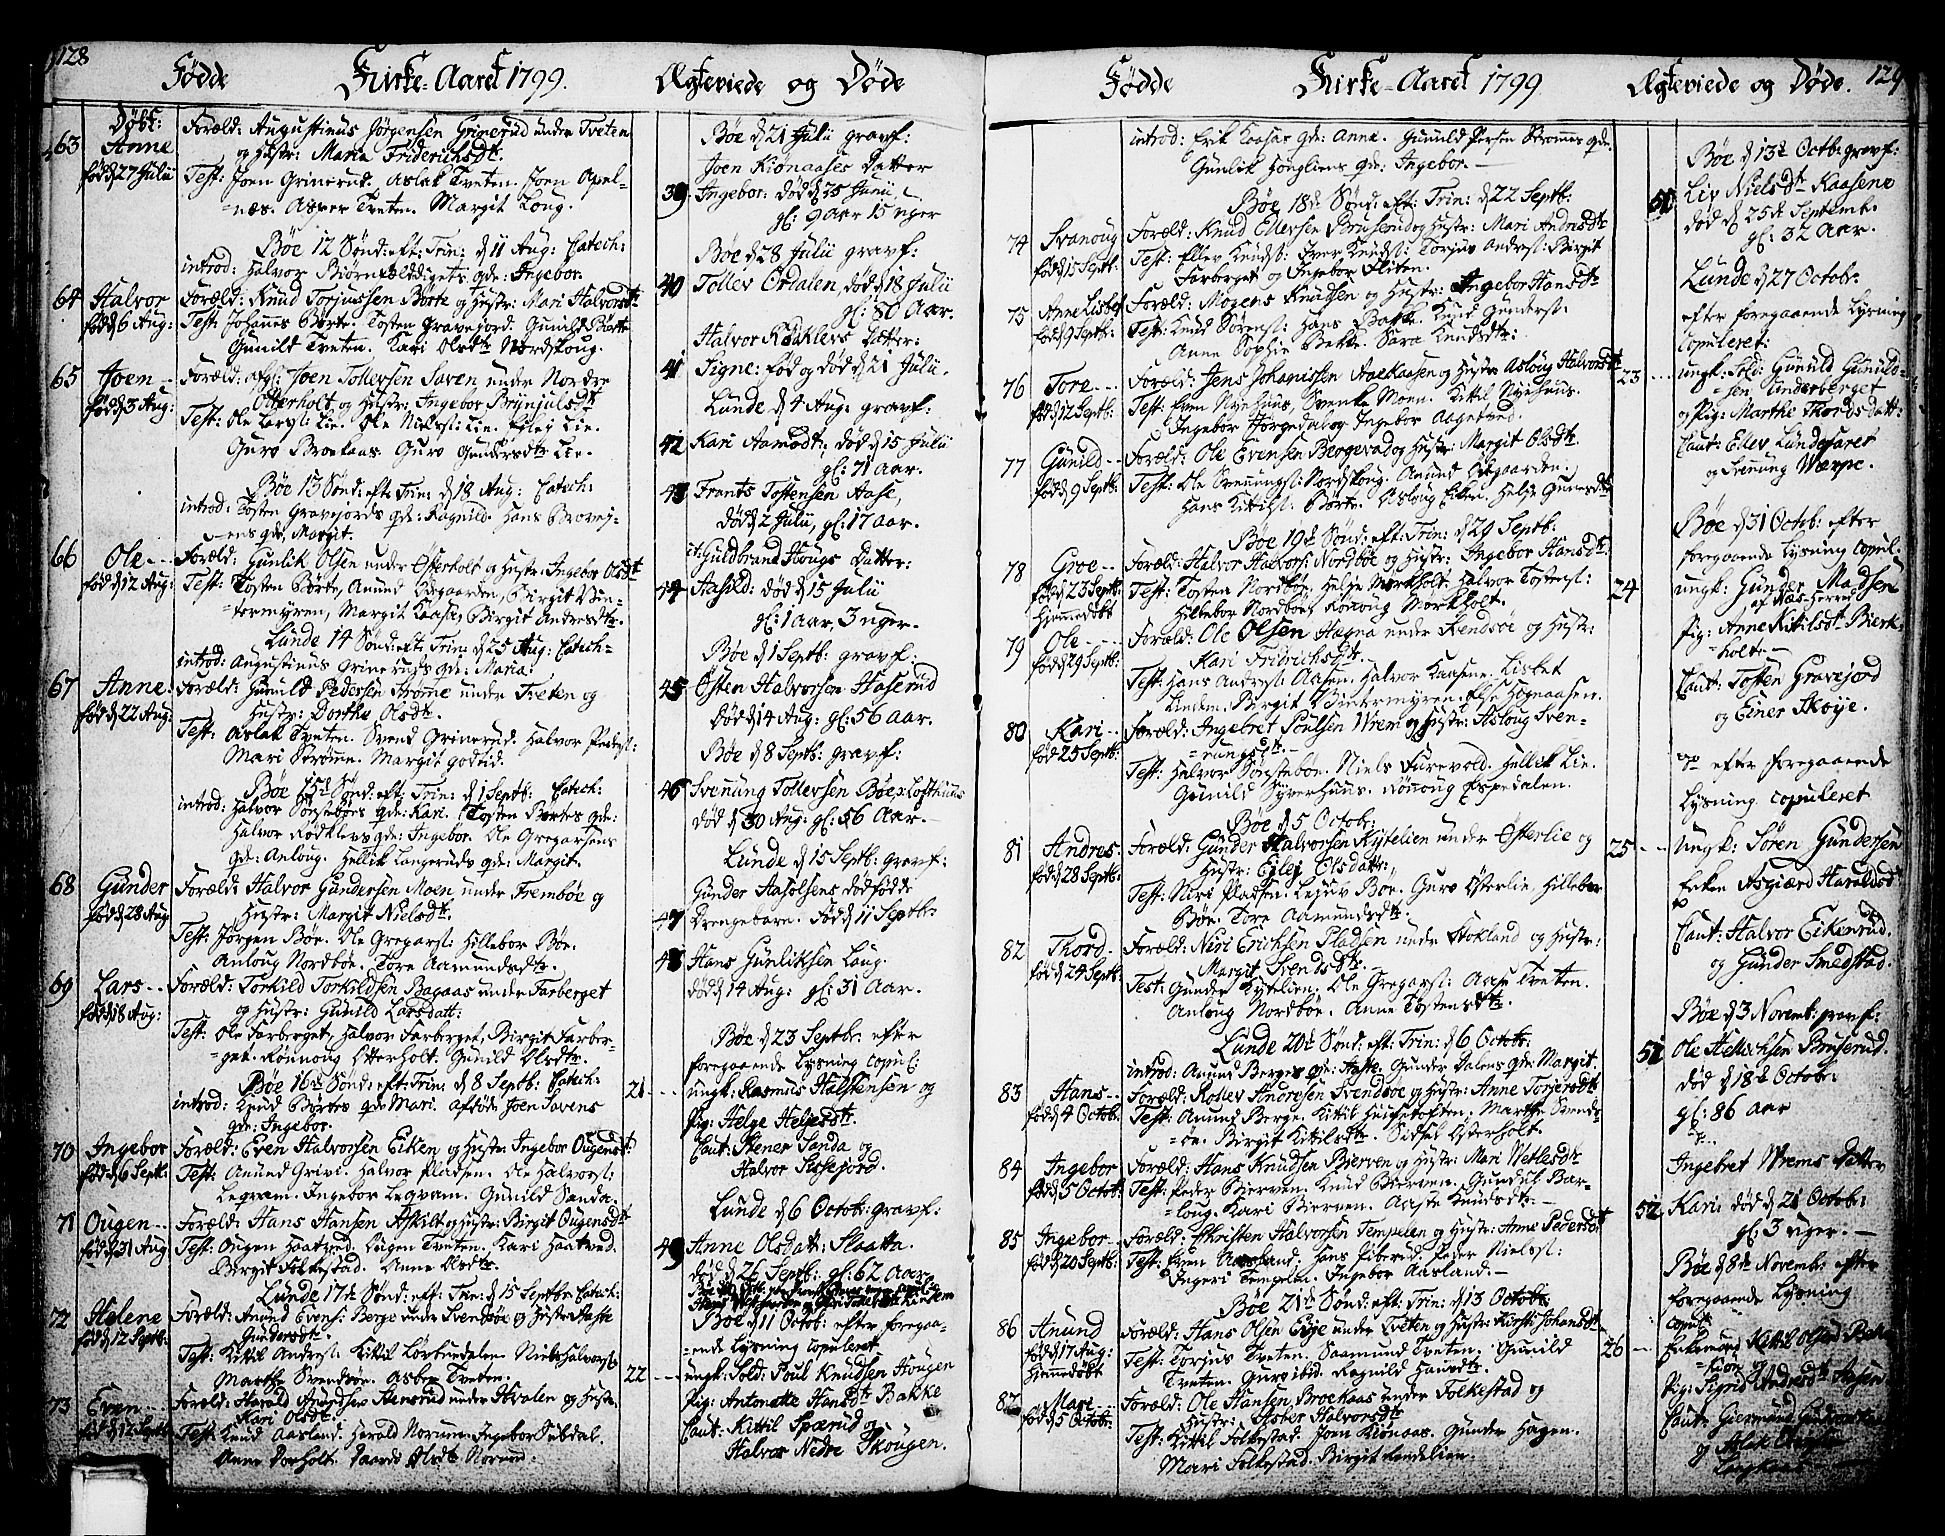 128
Fødde Kirke-Aaret 1799. Ægteviede og Døde
Døbt:
63 Anne
fød d 27 Julii
Foræld: Augustinus Jørgensen Grinerud under Tveten
og Hustr: Maria Friderichsdtr.
Test: Joen Grinerud. Aslak Tveten. Joen Apel-
=næs. Asver Tveten. Margit Loug.
Bøe 12 Sønd: eft: Trin: d 11 Aug: Catech:
introd: Halvor Biørnvolddigets qde: Ingebor.
64 Halvor
fød d 6 Aug:
Foræld: Knud Torjussen Børte og Hustr: Mari Halvorsdtr
Test: Johannes Børte. Tosten Gravejord. Gunild Børte
Gunild Tveten. Kari Olsdtr Nordskoug.
65 Joen
fød d 3 Aug:
Foræld: afg: Joen Tollevsen Saven under Nordre
Otterholt og Hustr: Ingebor Brynjulsdtr
Test: Ole Larsl: Lie. Ole Nielsl: Lie. Eilej Lie.
Guro Broekaas. Guro Gundersdtr Lie.
Bøe 13 Sønd: eft: Trin: d 18 Aug: Catech:
introd: Tosten Gravejords qde: Ragnild. Hans Brovej-
=ens qde, Margit.
66 Ole
fød d 12 Aug:
Foræld: Gunlik Olsen under Østerholt og Hustr: Ingebor Olsdtr
Test: Tosten Børte, Anund Opgaarden, Birgit Vin-
=termyren, Margit Kaasa, Birgit Andresdtr.
Lunde 14 Sønd: eft: Trin: d 25 Aug: Catech:
introd: Augustinus Grineruds qde: Maria.
67 Anne
fød d 22 Aug:
Foræld: Gunuld Pedersen Strøme under Tveten og
Hustr: Dorthe Olsdtr.
Test: Aslak Tveten. Svend Grinerud. Halvor Pedersl:
Mari Strømen. Margit godtid.
Bøe 15de Sønd: eft: Trin: d 1 Septb: Catech:
introd: Halvor Sørstebøes qde: Kari. Tosten Børtes qde:
Halvor Rødklevs qde: Ingebor. Ole Gregarsens
qde: Anloug. Hellik Langeruds qde: Margit.
68 Gunder
fød d 28 Aug
Foræld: Halvor Gundersen Moen under Frembøe og
Hustr: Margit Nielsdtr.
Test: Jørgen Bøe. Ole Gregarsl: Hillebor Bøe.
Anloug Nordbøe. Tore Aamundsdtr.
69 Lars
fød d 18 Aug:
Foræld: Torkild Torkildsen Bagaas under Farberget
og Hustr: Gunild Larsdatt:
Test: Ole Farberget, Halvor Farberget, Birgit Farber-
=get. Rønnoug Otterholt. Gunild Olsdtr.
Bøe 16de Sønd: eft: Trin: d 8 Septb: Catech:
introd: Knud Børtes qde Mari. afdøde Joen Savens
qde: Ingebor.
70 Ingebor
fød d 6 Septb:
Foræld: Even Halvorsen Eiken og Hustr: Ingebor Ougensdtr
Test: Anund Grivi. Halvor Pladsen. Ole Halvorsl:
Legvam. Ingebor Legvam. Gunild Sanda.
71 Ougen
fød d 31 Aug
Foræld: Hans Hansen Askilt og Hustr: Birgit Ougensdtr
Test: Ougen Haatved. Ougen Tveten. Kari Haatved.
Birgit Folkestad. Anne Olsdtr.
Lunde 17de Sønd: eft: Trin: d 15 Septbr Catech:
72 Helene
fød d 12 Septb:
Foræld: Anund Evens: Berge under Svendsøe og Hustr Aaste
Gundersdtr.
Test: Kittil Andresl: Kittil Lørbudalen. Niels Halvorsl:
Marthe Svendsøe. Asber Tveten.
73 Even
fød d 12 Septb:
Foræld: Harald Anundsen Hensrud under Hvalen og Hustr.
Kari Olsdtr.
Test: Knud Aasland. Herald Norumn. Ingebor Lisdal.
Anne Dorholt. Daarde Olsdtr Norumn:
Bøe d 21 Julii gravf:
Joen Kionaases Datter
39 Ingebor: død d 15 Junii
gl: 9 Aar 15 uger
Bøe d 28 Julii gravf:
40 Tollev Ordalen, død d 18 Julii
gl: 80 Aar.
Halvor Rødklevs Datter:
41 Signe: fød og død d 21 Julii.
Lunde d 4 Aug: gravf:
42 Kari Aamodt: død d 15 Julii
gl: 71 Aar.
43 Frants Tostensen Aase,
død d 2 Julii, gl: 17 Aar.
it: Guldbrand Hougs Datter:
44 Aashild: død d 15 Julii
gl: 1 Aar, 3 uger.
Bøe d 1 Septb: gravf:
45 Østen Halvorsen Haserud
død d 14 Aug: gl: 56 Aar.
Bøe d 8 Septb: gravf:
46 Svenung Tollevsen Bøe x Lofthuus
død d 30 Aug: gl: 56 Aar.
Lunde d 15 Septb: gravf:
Gunder Aasolsens dødfødde
47 Drengebarn. Fød d 11 Septb:
48 Hans Gunliksen Laug.
død d 14 Aug: gl: 31 Aar.
Bøe d 23 Septbr efter
foregaaende Lysning copul:
21 ungk: Rasmus Halstensen og
Pig: Helge Helgesdtr
Caut: Stener Sanda og
Halvor Sissejord.
Lunde d 6 Octob: gravf:
49 Anne Olsdat: Slaatta.
død d 26 Septb: gl: 62 Aar.
Bøe d 11 Octob: efter foregaa-
=ende Lysning copuleret
22 ungk: Sold: Poul Knudsen Hougen
Pig: Antonette Hansdtr Bakke
Caut: Kittil Sperud og
Halvor Nedre Skougen.
Fødde Kirke-Aaret 1799. Ægteviede og Døde. 129
introd: Erik Kaasas qde: Anne. Gunuld Persen Strømes qde.
Gunlik Honglies qde: Ingebor.
Bøe 18de Sønd: eft: Trin: d 22 Septb:
74 Svanoug
fød d 15 Septb:
Foræld: Knud Ellevsen Bruserud og Hustr: Mari Andresdtr
Test: Ellev Knudsl: Iver Knudsl: Torjus Andersl: Birgit
Farberget og Ingebor Fliten.
75 Anne Lisbet
fød d 9 Septb:
Foræld: Mogens Knudsen og Hustr: Ingebor Hansdtr
Test: Knud Sørensl: Hans Bakke. Knud Gundersl:
Anne Sophie Bekke. Sara Knudsdtr:
76 Tore
fød d 12 Septb:
Foræld: Jens Johannissen Aaekaasen og Hustr Asloug Halvorsdtr
Test: Even Nyehuus, Svenke Moen. Kittil Nyehuus.
Ingebor Hørgedal og Ingebor Aagetved.
77 Gunild
fød d 9 Septb:
Foræld: Ole Evensen Bergevald og Hustr: Margit Olsdtr.
Test: Ole Svenungsl: Nordskoug. Anund Opgaarden.
Hans Kittilsl: Børte. Asloug Eiken. Helje Gunersdtr
Bøe 19de Sønd: eft: Trin: d 29 Septb:
78 Groe
fød d 23 Septb
hjemmedøbt
Foræld: Halvor Halvors: Nordbøe og Hustr: Ingebor Hansdtr.
Test: Tosten Nordbøe. Helje Markholt. Halvor Tostensl:
Hillebor Nordbøe. Rønoug Morkholt.
79 Ole
fød d 29 Septb:
Foræld: Ole Olsen Hægna under Svendsøe og Hustr:
Kari Fridrichsdtr.
Test: Hans Andresl: Aasen. Halvor Kaasene. Lisbet
Linden. Birgit Vintermyren. Else Hognaasen.
80 Kari
fød d 25 Septb:
Foræld: Ingebret Poulsen Wrem og Hustr: Asloug Sven-
=nungsdtr.
Test: Halvor Sørstebøe. Niels Furevold. Hellik Lie.
Gunild Hyverhuus. Rønoug Espedalen.
Bøe d 5 Octob:
81 Andres
fød d 28 Septb:
Foræld: Gunder Halvorsen Kytelien under Østerlie og
Hustr: Eilej Olsdatt.
Test: Niri Pladsen. Lejuv Bøe. Guro Østerlie, Hillebor
Bøe. Tore Aamundsdtr.
82 Thord
fød d 24 Septb:
Foræld: Niri Erichsen Pladsen under Stokland og Hustr:
Margit Svendsdtr.
Test: Gunder Kytelien. Ole Gregarsl: Aase Tveten.
Anloug Nordbøe. Anne Tostensdtr.
Lunde 20de Sønd: eft: Trin: d 6 Octob:
introd: Anund Berges qde: Aaste. Gunder Aalens qde: Margit.
83 Hans
fød d 4 Octob:
Foræld: Rollev Andresen Svendsøe og Hustr: Anne Torjersdtr
Test: Anund Berge. Kittil Huusetoften. Marthe Svends-
=øe. Birgit Kittilsdtr. Sidsel Østerholt.
84 Ingebor
fød d 5 Octob:
Foræld: Hans Knudsen Bierven og Hustr: Mari Wetlesdtr
Test: Peder Bierven. Knud Bierven. Gundul Bar-
=loug. Kari Bierven. Aaste Knudsdtr.
85 Ingebor
fød d 20 Septb:
Foræld: Christen Halvorsen Tempelen og Hustr: Anne Pedersdtr
Test: Even Aasland. Hans Piberud. Peder Nielsl:
Ingeri Templen. Ingebor Aasland.
Bøe 21de Sønd: eft: Trin: d 13 Octob:
86 Anund
fød d 17 Aug:
hjemmedøbt
Foræld: Hans Olsen Eeye under Tveten og Hustr: Kirsti Johansdtr
Test: Torjus Tveten. Saamund Tveten. Gunild
Tveten. Guro ibid. Ragnild Hansdtr.
87 Mari
fød d 5 Octob:
Foræld: Ole Hansen Broekaas under Folkestad og
Hustr: Asber Halvorsdtr
Test: Kittil Folkestad. Joen Kionaas. Gunder Hagen.
Mari Folkestad. Birgit Hendelien.
Bøe d 13de Octb: gravf:
50 Liv Nielsdtr Kaasene
død d 25de Septemb:
gl: 32 Aar.
Lunde d 27 Octob:
efter foregaaende Lysning
Copuleret:
23 ungk: Sold: Gunuld Gunuld-
=sen Underberget
og Pig: Marthe Thordsdatt:
Caut: Ellev Lundefaret
og Svenung Wærpe.
Bøe d 31 Octob: efter
foregaaende Lysning copul.
24 ungk: Gunder Madsen
af Næs-Herred
Pig: Anne Kittilsdtr Bierk-
=holt
Caut: Tosten Gravejord
og Einer Skoye.
efter foregaaende
Lysning copuleret
25 Ungk: Søren Gundersen
Enken Asgierd Haraldsd
Caut: Halvor Eikenrud.
og Gunder Smedstad.
Bøe d 3 Novemb: gravf:
51 Ole Hellichsen Bruserud.
død d 18de Octob:
gl: 86 Aar
Ingebret Wrems Datter
52 Kari død d 21 Octob:
gl: 3 uger.
Bøe d 8de Novemb: efter
foregaaende Lysning
copul:
26 Enkemand Kittil Olsen
Pig: Sigrid Andresdtr Aasen
Caut: Giermund
og Aslak